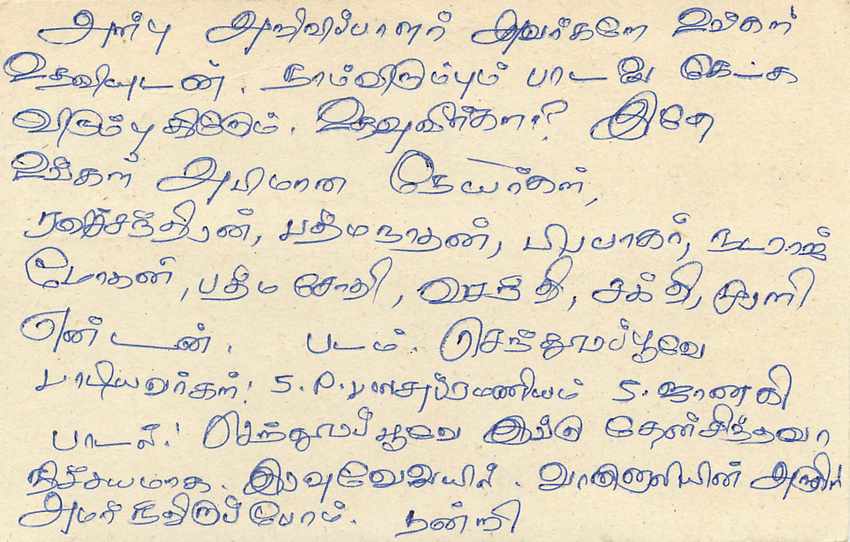 அன்பு அறிவிப்பாளர் அவர்களே உங்கள்
உதவியுடன். நாம்விரும்பும் பாடலை கேட்க
விரும்புகிறோம். உதவுவீர்களா? இதோ
உங்கள் அபிமான நேயர்கள்,
ரவிச்சந்திரன், பத்மநாதன், பிரபாகர், நடராஜ்
மோகன், பத்மசோதி, வசந்தி, சக்தி, முரளி
படம். செந்தூரப்பூவே
பாடியவர்கள்! S.P.பாலசுப்ரமணியம் S.ஜானகி
பாடல்! செந்தூரப்பூவே இங்கு தேன்சிந்தவா
நிச்சயமாக. இரவுவேளையில். வானொலியின் அருகில்
அமர்ந்திருப்போம். நன்றி